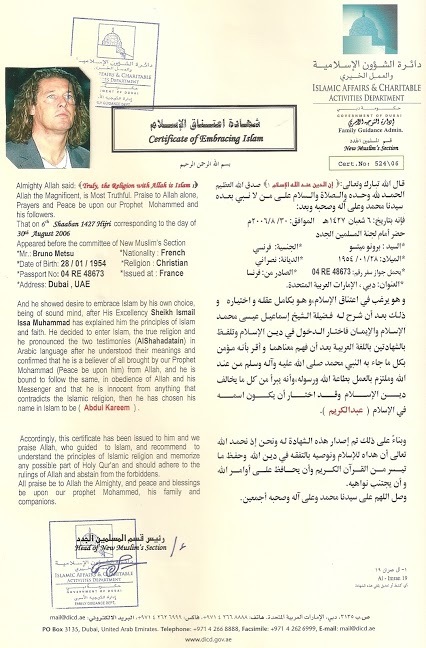 دائرة الشؤون الإسلامية
والعمل الخيري
ISLAMIC AFFAIRS & CHARITABLE
ACTIVITIES DEPARTMENT
حكومة دبي
GOVERNMENT OF DUBAI
إدارة التوجيه الأسري
Family Guidance Admin.
قسم المسلمين الجدد
New Muslim's Section
Cert.No: 524\06
شهادة اعتناق الإسلام
Certificate of Embracing Islam
بسم الله الرحمن الرحيم
Almighty Allah said: (Truly, the Religion with Allah is Islam)
Allah the Magnificent, is Most Truthful. Praise to Allah alone,
Prayers and Peace be upon our Prophet Mohammed and
his followers.
That on 6th Shaaban 1427 Hijri corresponding to the day of
30th August 2006
Appeared before the committee of New Muslim's Section
*Mr.: Bruno Metsu *Nationality : French
*Date of Birth: 28 / 01 / 1954 *Religion : Christian
*Passport No: 04 RE 48673 *Issued at : France
*Address: Dubai , UAE
And he showed desire to embrace Islam by his own choice,
being of sound mind, after His Excellency Sheikh Ismail
Issa Muhammad has explained him the principles of Islam
and faith. He decided to enter Islam, the true religion and
he pronounced the two testimonies (AlShahadatain) in
Arabic language after he understood their meanings and
confirmed that he is a believer of all brought by our Prophet
Mohammad (Peace be upon him) from Allah, and he is
bound to follow the same, in obedience of Allah and his
Messenger and that he is innocent from anything that
contradicts the Islamic religion, then he has chosen his
name in Islam to be ( Abdul Kareem ).
Accordingly, this certificate has been issued to him and we
praise Allah, who guided to Islam, and recommend to
understand the principles of Islamic religion and memorize
any possible part of Holy Qur'an and should adhere to the
rulings of Allah and abstain from the forbiddens.
All praise be to Allah the Almighty, and peace and blessings
be upon our prophet Mohammed, his family and
companions.
قال الله تبارك وتعالى:( إن الدين عند الله الإسلام ) صدق الله العظيم
الحمد لله وحده والصلاة والسلام على من لا نبي بعده
سيدنا محمد وعلى آله وصحبه وبعد:
فإنه بتاريخ: ٦ شعبان ١٤٢٧هـ الموافق: ٢٠٠٦/٨/٣٠م
حضر أمام لجنة المسلمين الجدد
*السيد : برونو ميتسو *الجنسية: فرنسي
*الميلاد: ١٩٥٤/٠١/٢٨ *الديانة: نصراني
*يحمل جواز سفر رقم: 04 RE 48673 *الصادر من: فرنسا
*العنوان: دبي ، الإمارات العربية المتحدة.
و هو يرغب في اعتناق الإسلام،و هو بكامل عقله و اختياره و
ذلك بعد أن شرح له فضيلة الشيخ إسماعيل عيسى محمد
الإسلام والإيمان فاختار الدخول في دين الإسلام وتلفظ
بالشهادتين باللغة العربية بعد أن فهم معناهما و أقر بأنه مؤمن
بكل ما جاء به النبي محمد صلى الله عليه وآله وسلم من عند
الله وملتزم بالعمل بطاعة الله ورسوله،وأنه يبرأ من كل ما يخالف
دين الإسلام وقد اختار أن يكون اسمه
في الإسلام ( عبدالكريم ).
وبناءً على ذلك تم إصدار هذه الشهادة له ونحن إذ نحمد الله
تعالى أن هداه للإسلام ونوصيه بالتفقه في دين الله وحفظ ما
تيسر من القرآن الكريم وأن يحافظ على أوامر الله
و أن يجتنب نواهيه.
وصل اللهم على سيدنا محمد وعلى آله وصحبه أجمعين.
رئيس قسم المسلمين الجدد
Head of New Muslim's Section
ISLAMIC AFFAIRS & CHARITABLE
ACTIVITIES DEPARTMENT
GOVERNMENT OF DUBAI
FAMILY GUIDANCE DEPT.
١- آل عمران ١٩
Al - Imran 19
ص.ب ٣١٣٥، دبي، الإمارات العربية المتحدة. هاتف: ٨٨٨٨ ٢٦٦ ٤ ٩٧١+، فاكس: ٦٩٩٩ ٢٦٢ ٤ ٩٧١+، البريد الإلكتروني: mail@dicd.ae
PO Box 3135, Dubai, United Arab Emirates. Telephone: +971 4 266 8888, Facsimile: +971 4 262 6999, E-Mail: mail@dicd.ae
www.dicd.gov.ae